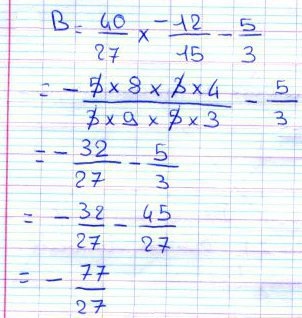 B = 40/27 × -12/15 - 5/3
= - (5 × 8 × 3 × 4)/(3 × 9 × 5 × 3) - 5/3
= - 32/27 - 5/3
= - 32/27 - 45/27
= - 77/27